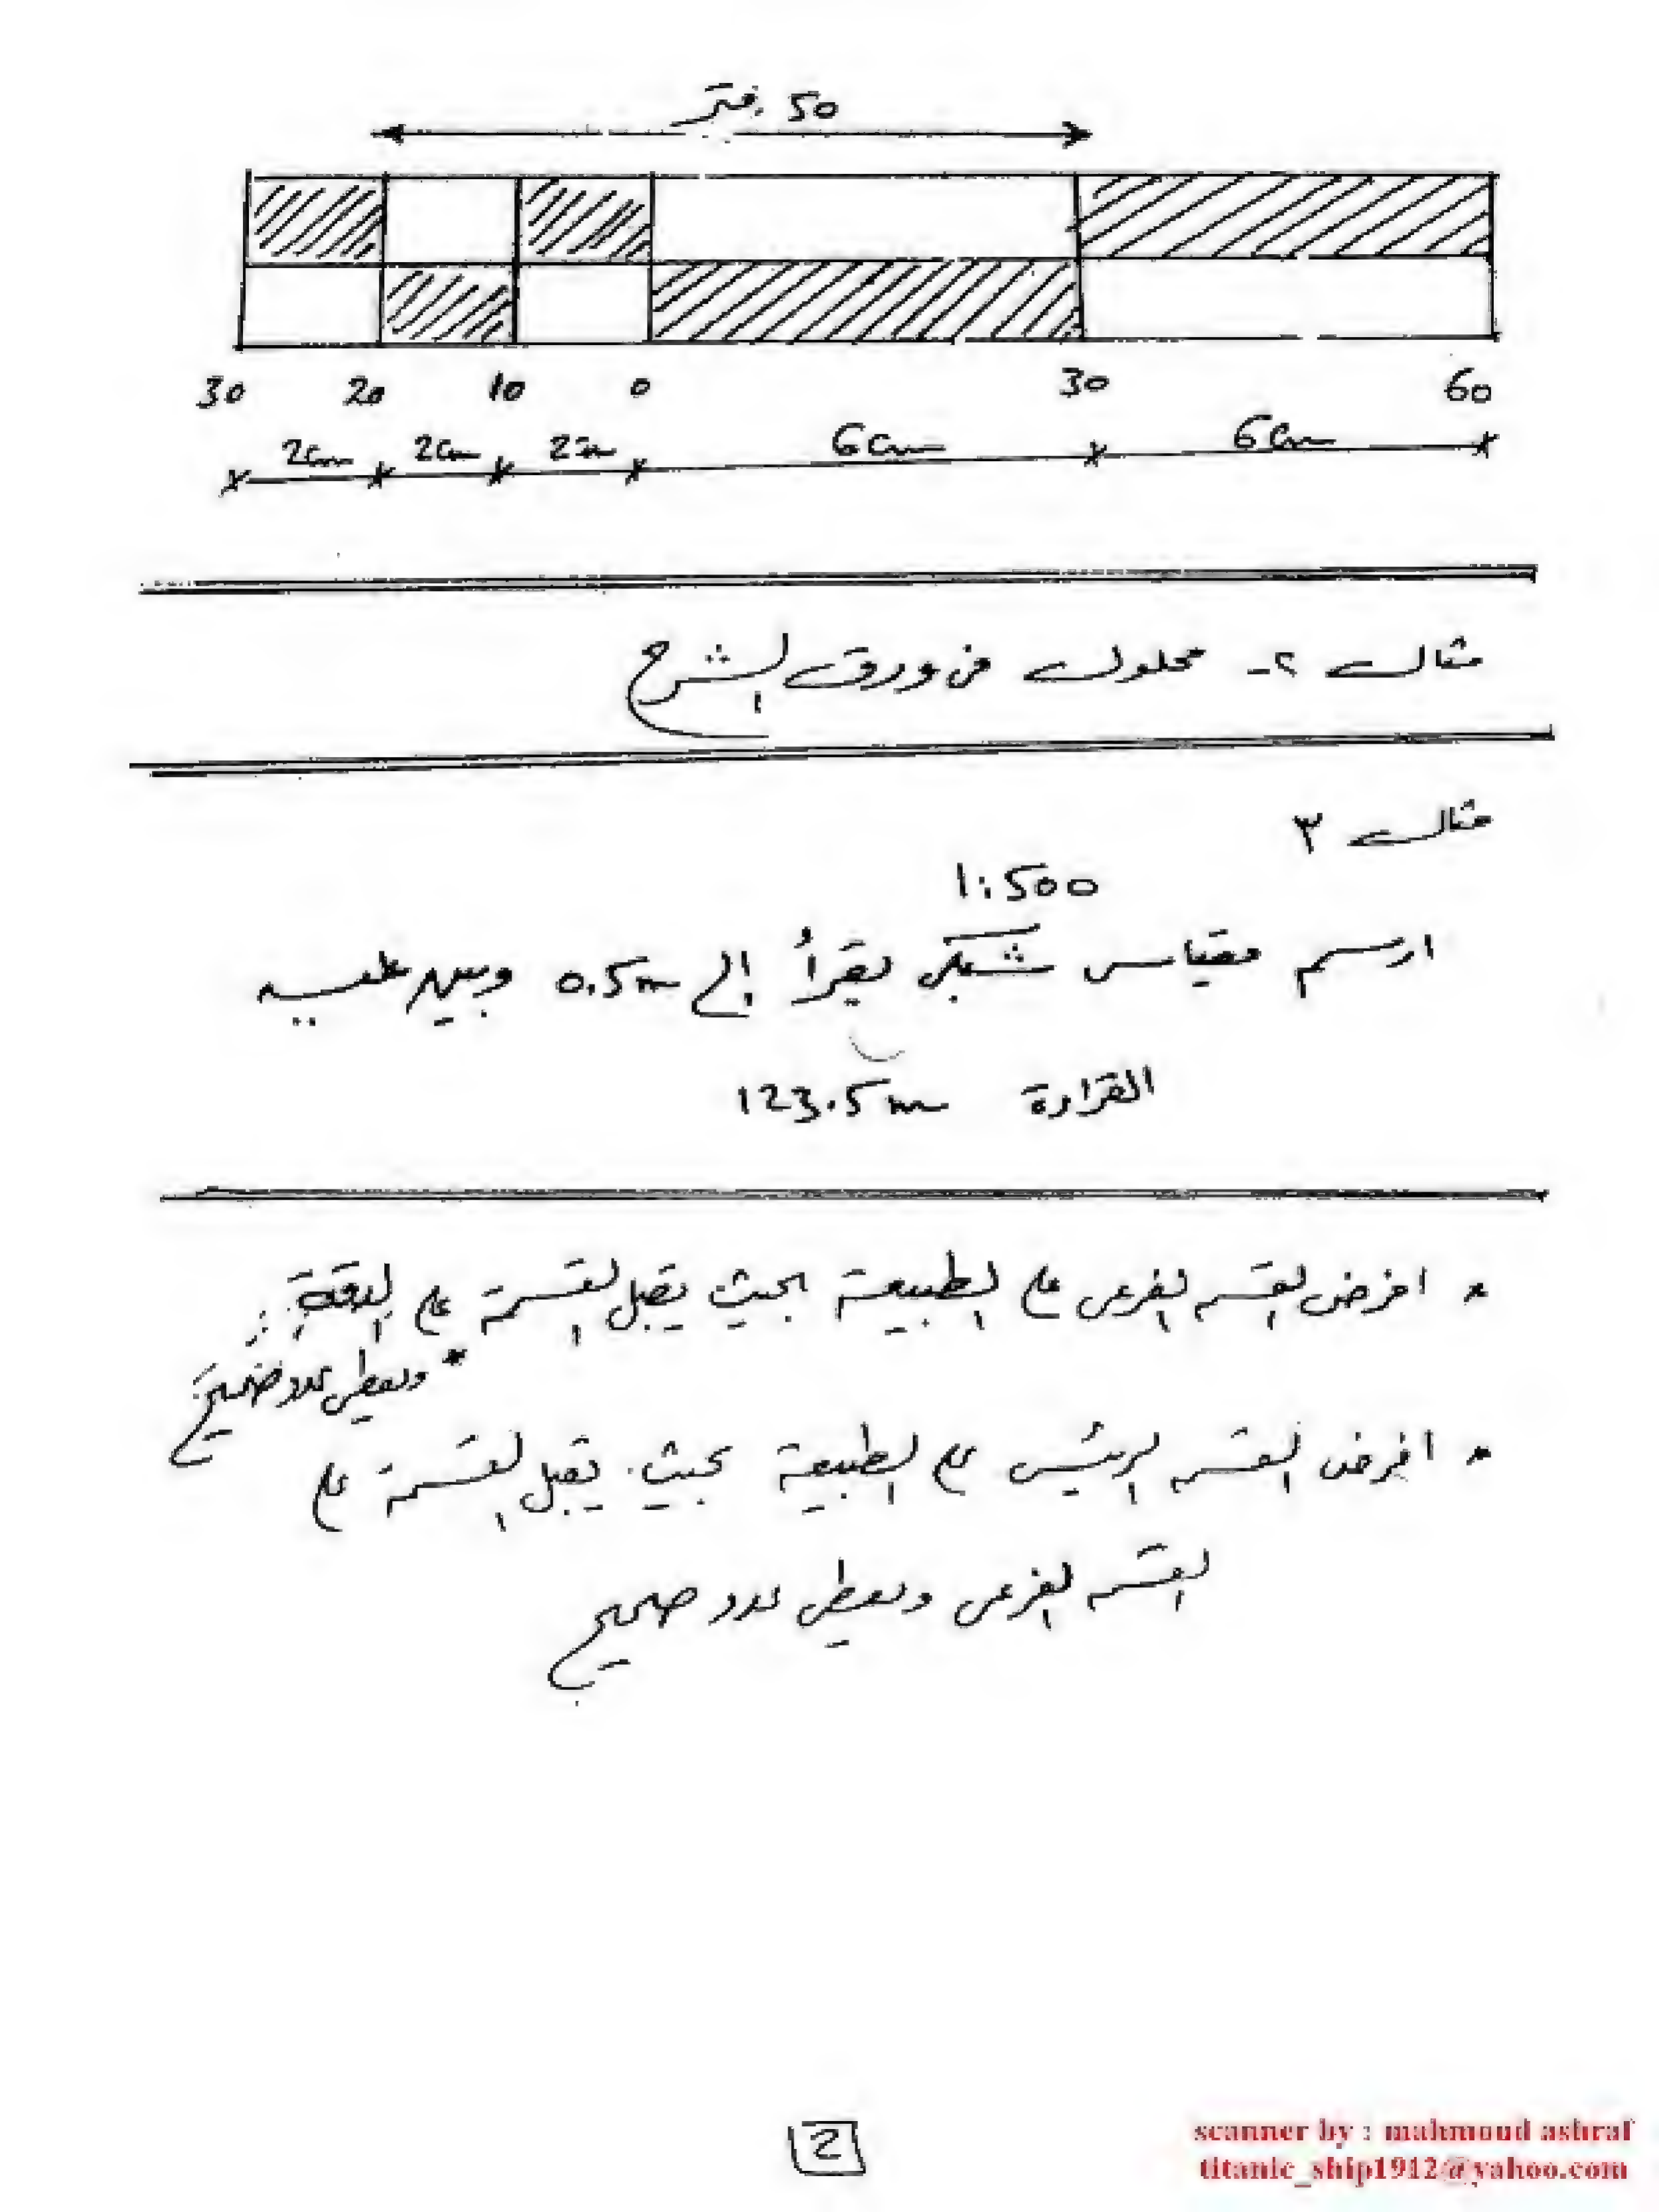 50 متر
30 20 10 0 30 60
2cm 2cm 2cm 6cm 6cm
مثال ٢- محلول في ورق الشرح
مثال ٣
1:500
ارسم مقياس شبكى يقرأ إلى 0.5m وبين عليه
القراءة 123.5m
* افرض القسم الفرعى على الطبيعة بحيث يقبل القسمة على الدقة
* ويعطى عدد صحيح
* افرض القسم الرئيسى على الطبيعة بحيث يقبل القسمة على
القسم الفرعى ويعطى عدد صحيح
2
scanner by : mahmoud ashraf
titanic_ship1912@yahoo.com